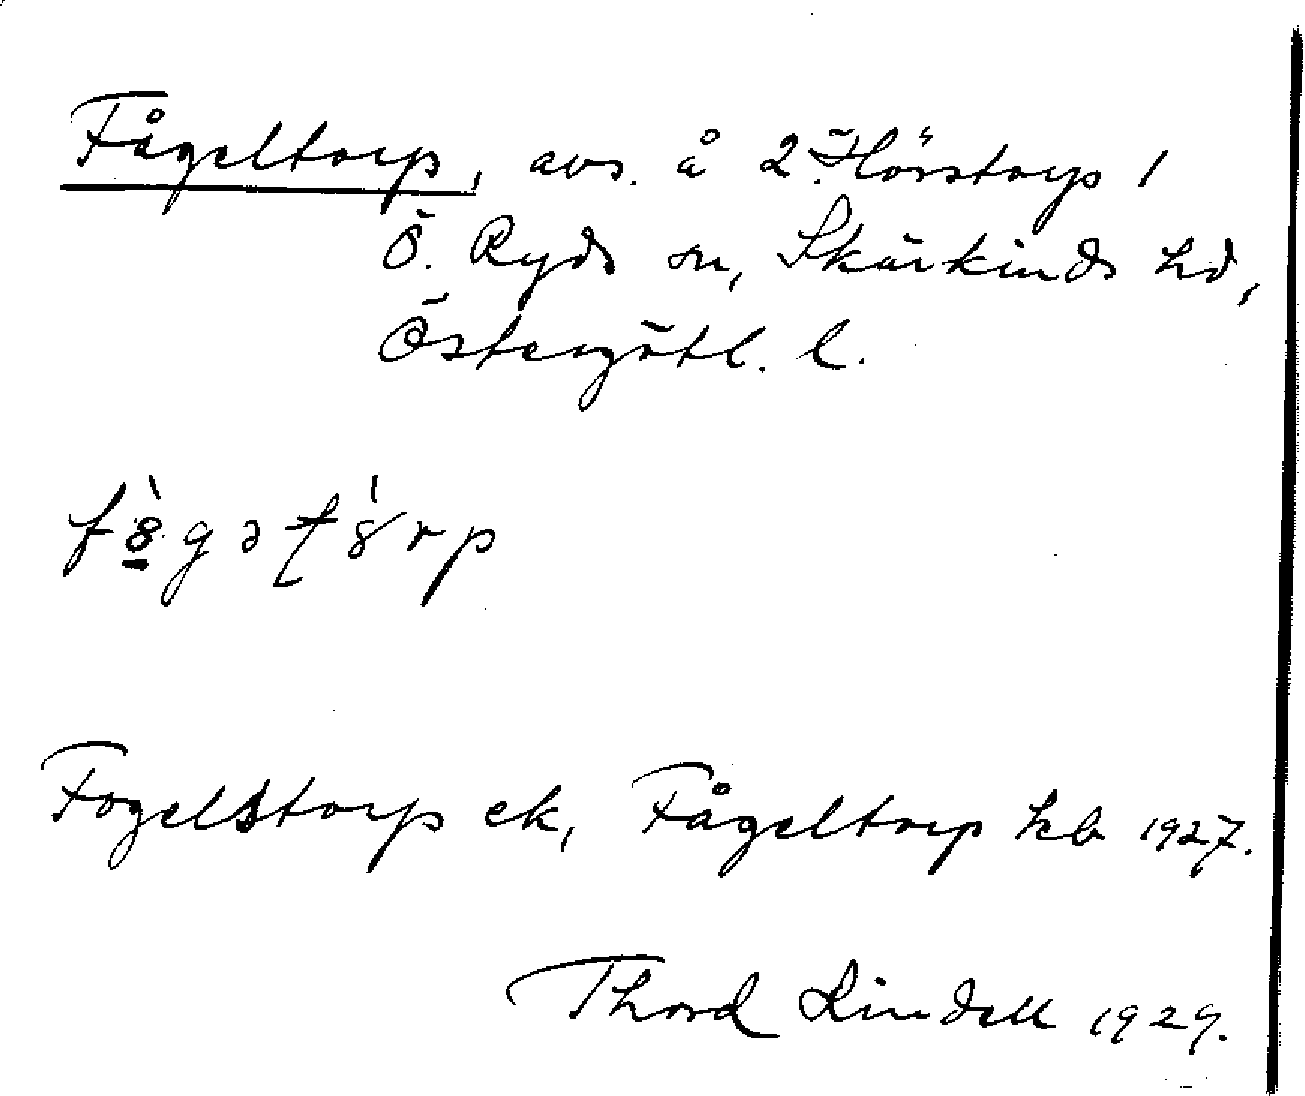 Fågeltorp, avs. å 2. Hörstorp 1
Ö. Ryds sn, Skärkinds hd,
Östergötl. l.
f8̀gəʈ8́rp
Fogelstorp ek, Fågeltorp hb 1927.
Thord Lindell 1929.